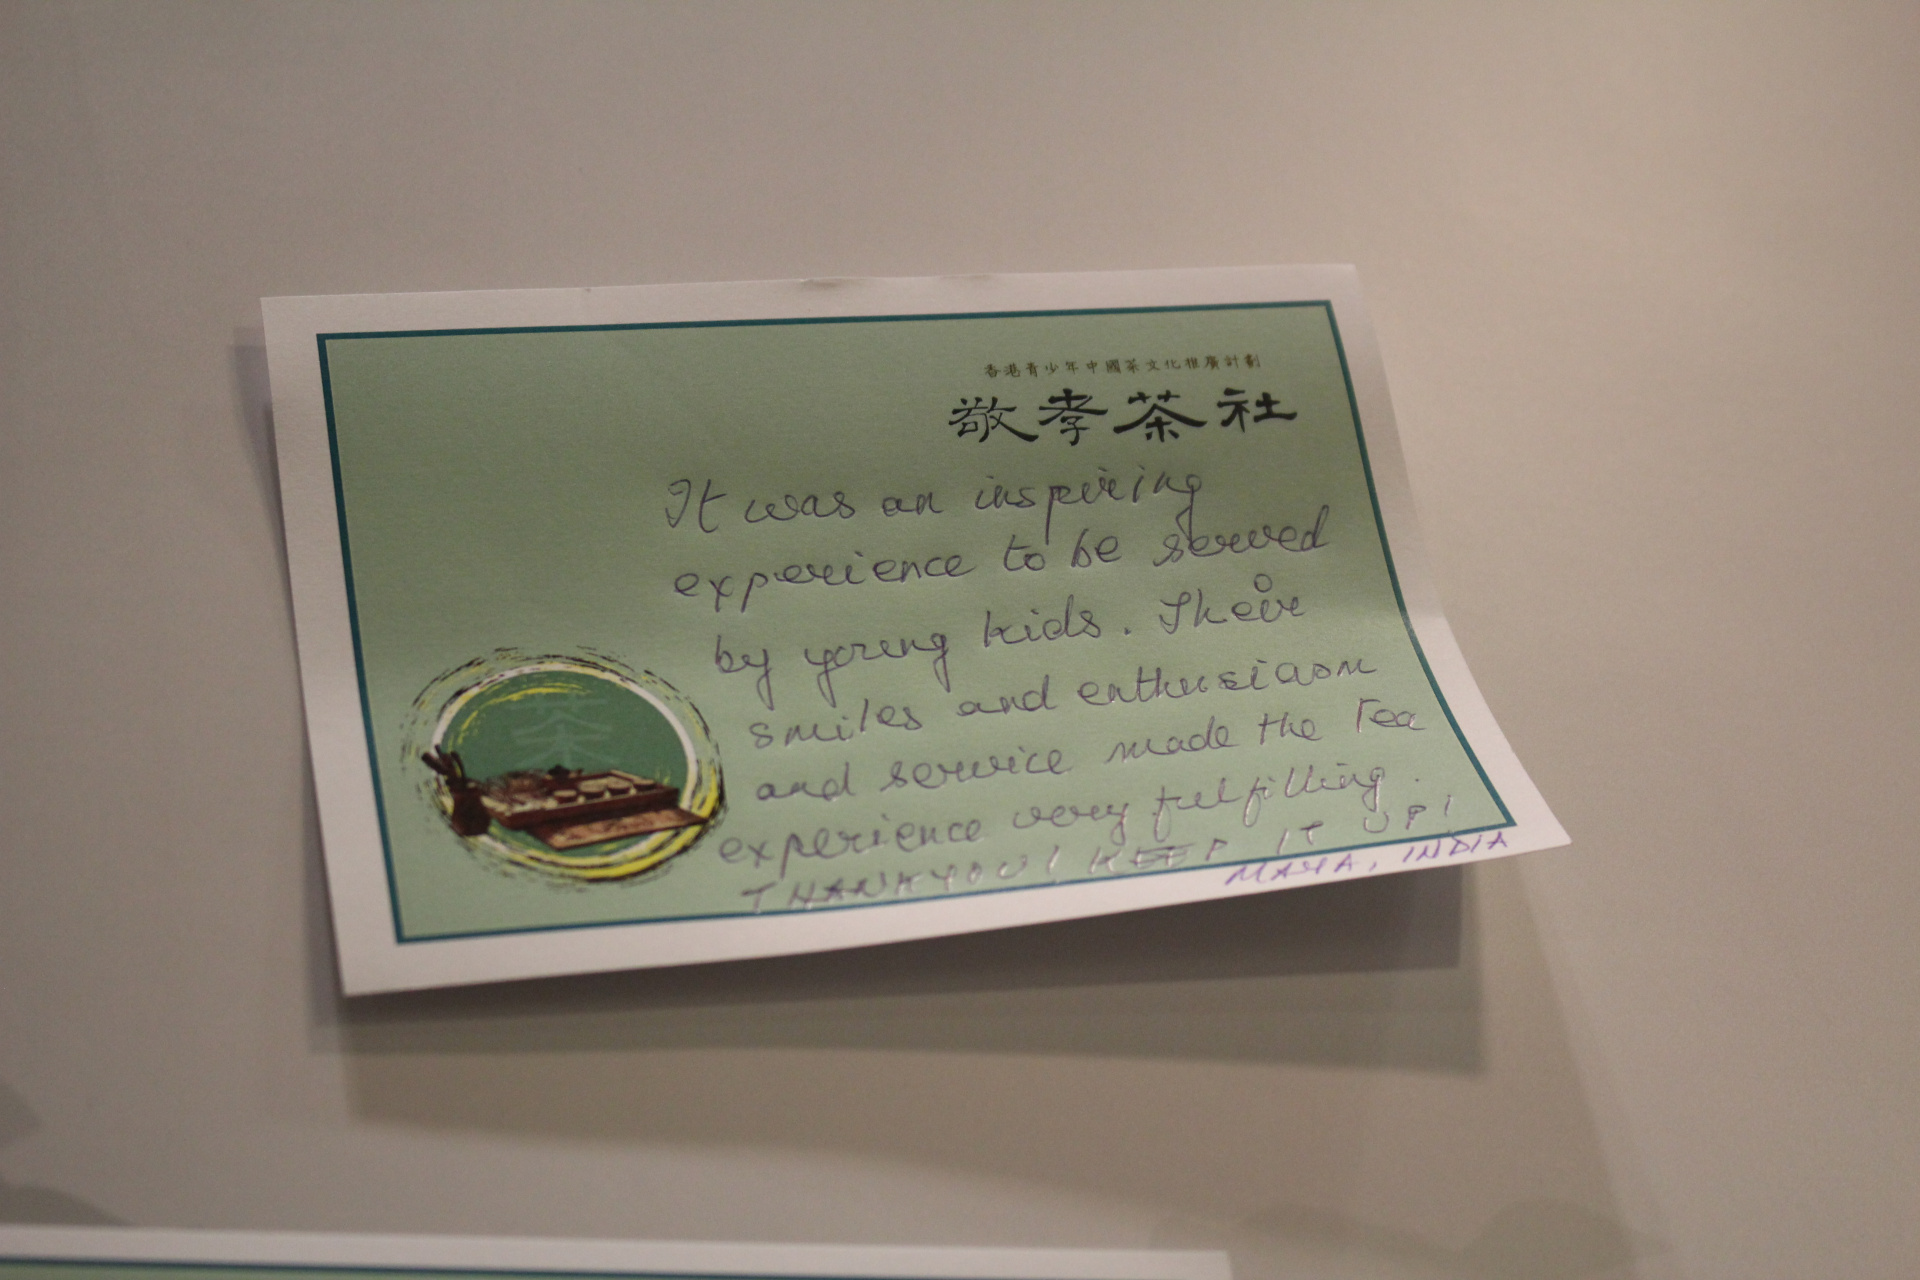 香港青少年中國茶文化推廣計劃
敬孝茶社
It was an inspiring
experience to be served
by young kids. Their
smiles and enthusiasm
and service made the Tea
experience very fulfilling.
THANK YOU! KEEP IT UP!
MAYA, INDIA
茶